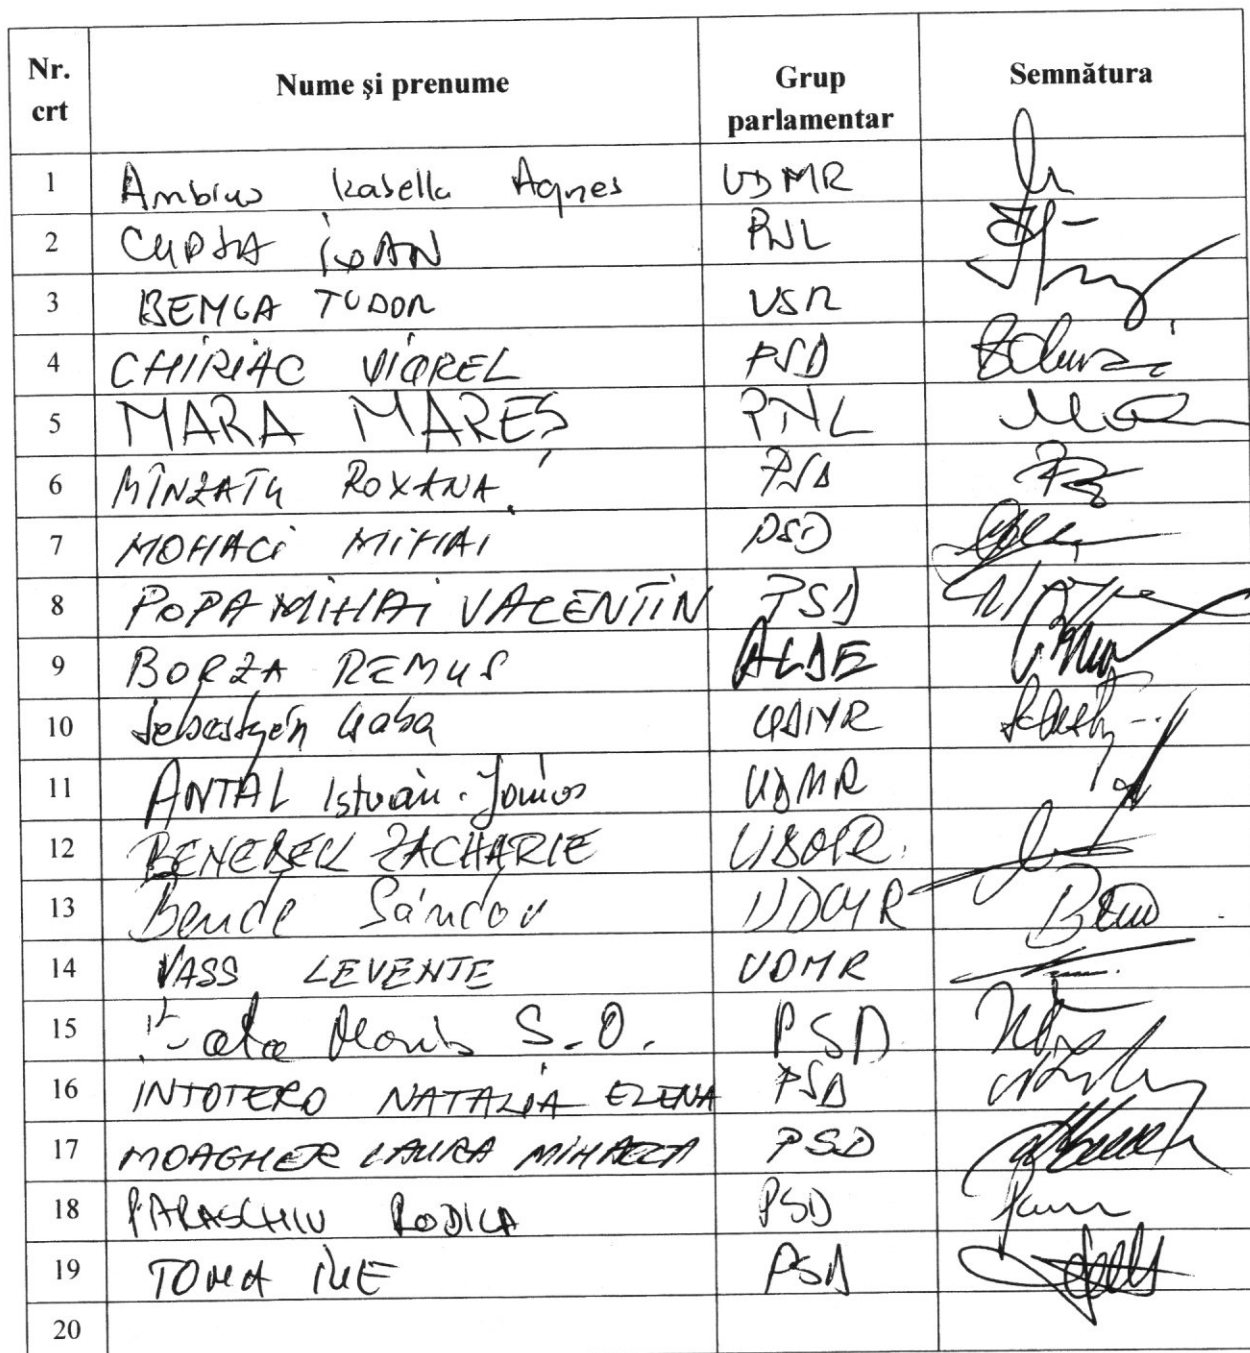 Nr. crt Nume și prenume Grup parlamentar Semnătura
1 Ambrus Izabella Agnes UDMR
2 CUPȘA IOAN PNL
3 BENGA TUDOR USR
4 CHIRIAC VIOREL PSD
5 MARA MAREȘ PNL
6 MÎNZATU ROXANA PSD
7 MOHACI MIHAI PSD
8 POPA MIHAI VALENTIN PSD
9 BORZA REMUS ALDE
10 Sebestyén Csaba UDMR
11 ANTAL István-János UDMR
12 BENEDEK ZACHARIE UDMR
13 Bende Sándor UDMR
14 VASS LEVENTE UDMR
15 S.O. PSD
16 INTOTERO NATALIA ELENA PSD
17 MOAGHER LAURA MIHAELA PSD
18 PARASCHIV RODICA PSD
19 TOMA ILIE PSD
20